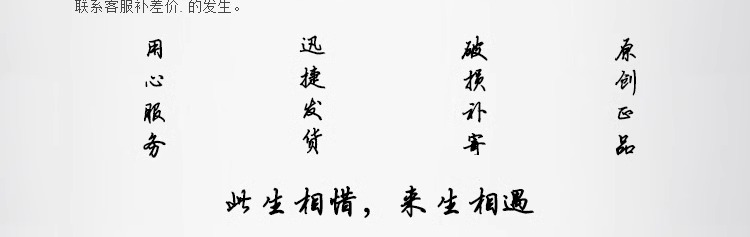 联系客服补差价. 的发生。
用心服务
迅捷发货
破损补寄
原创正品
此生相惜，来生相遇